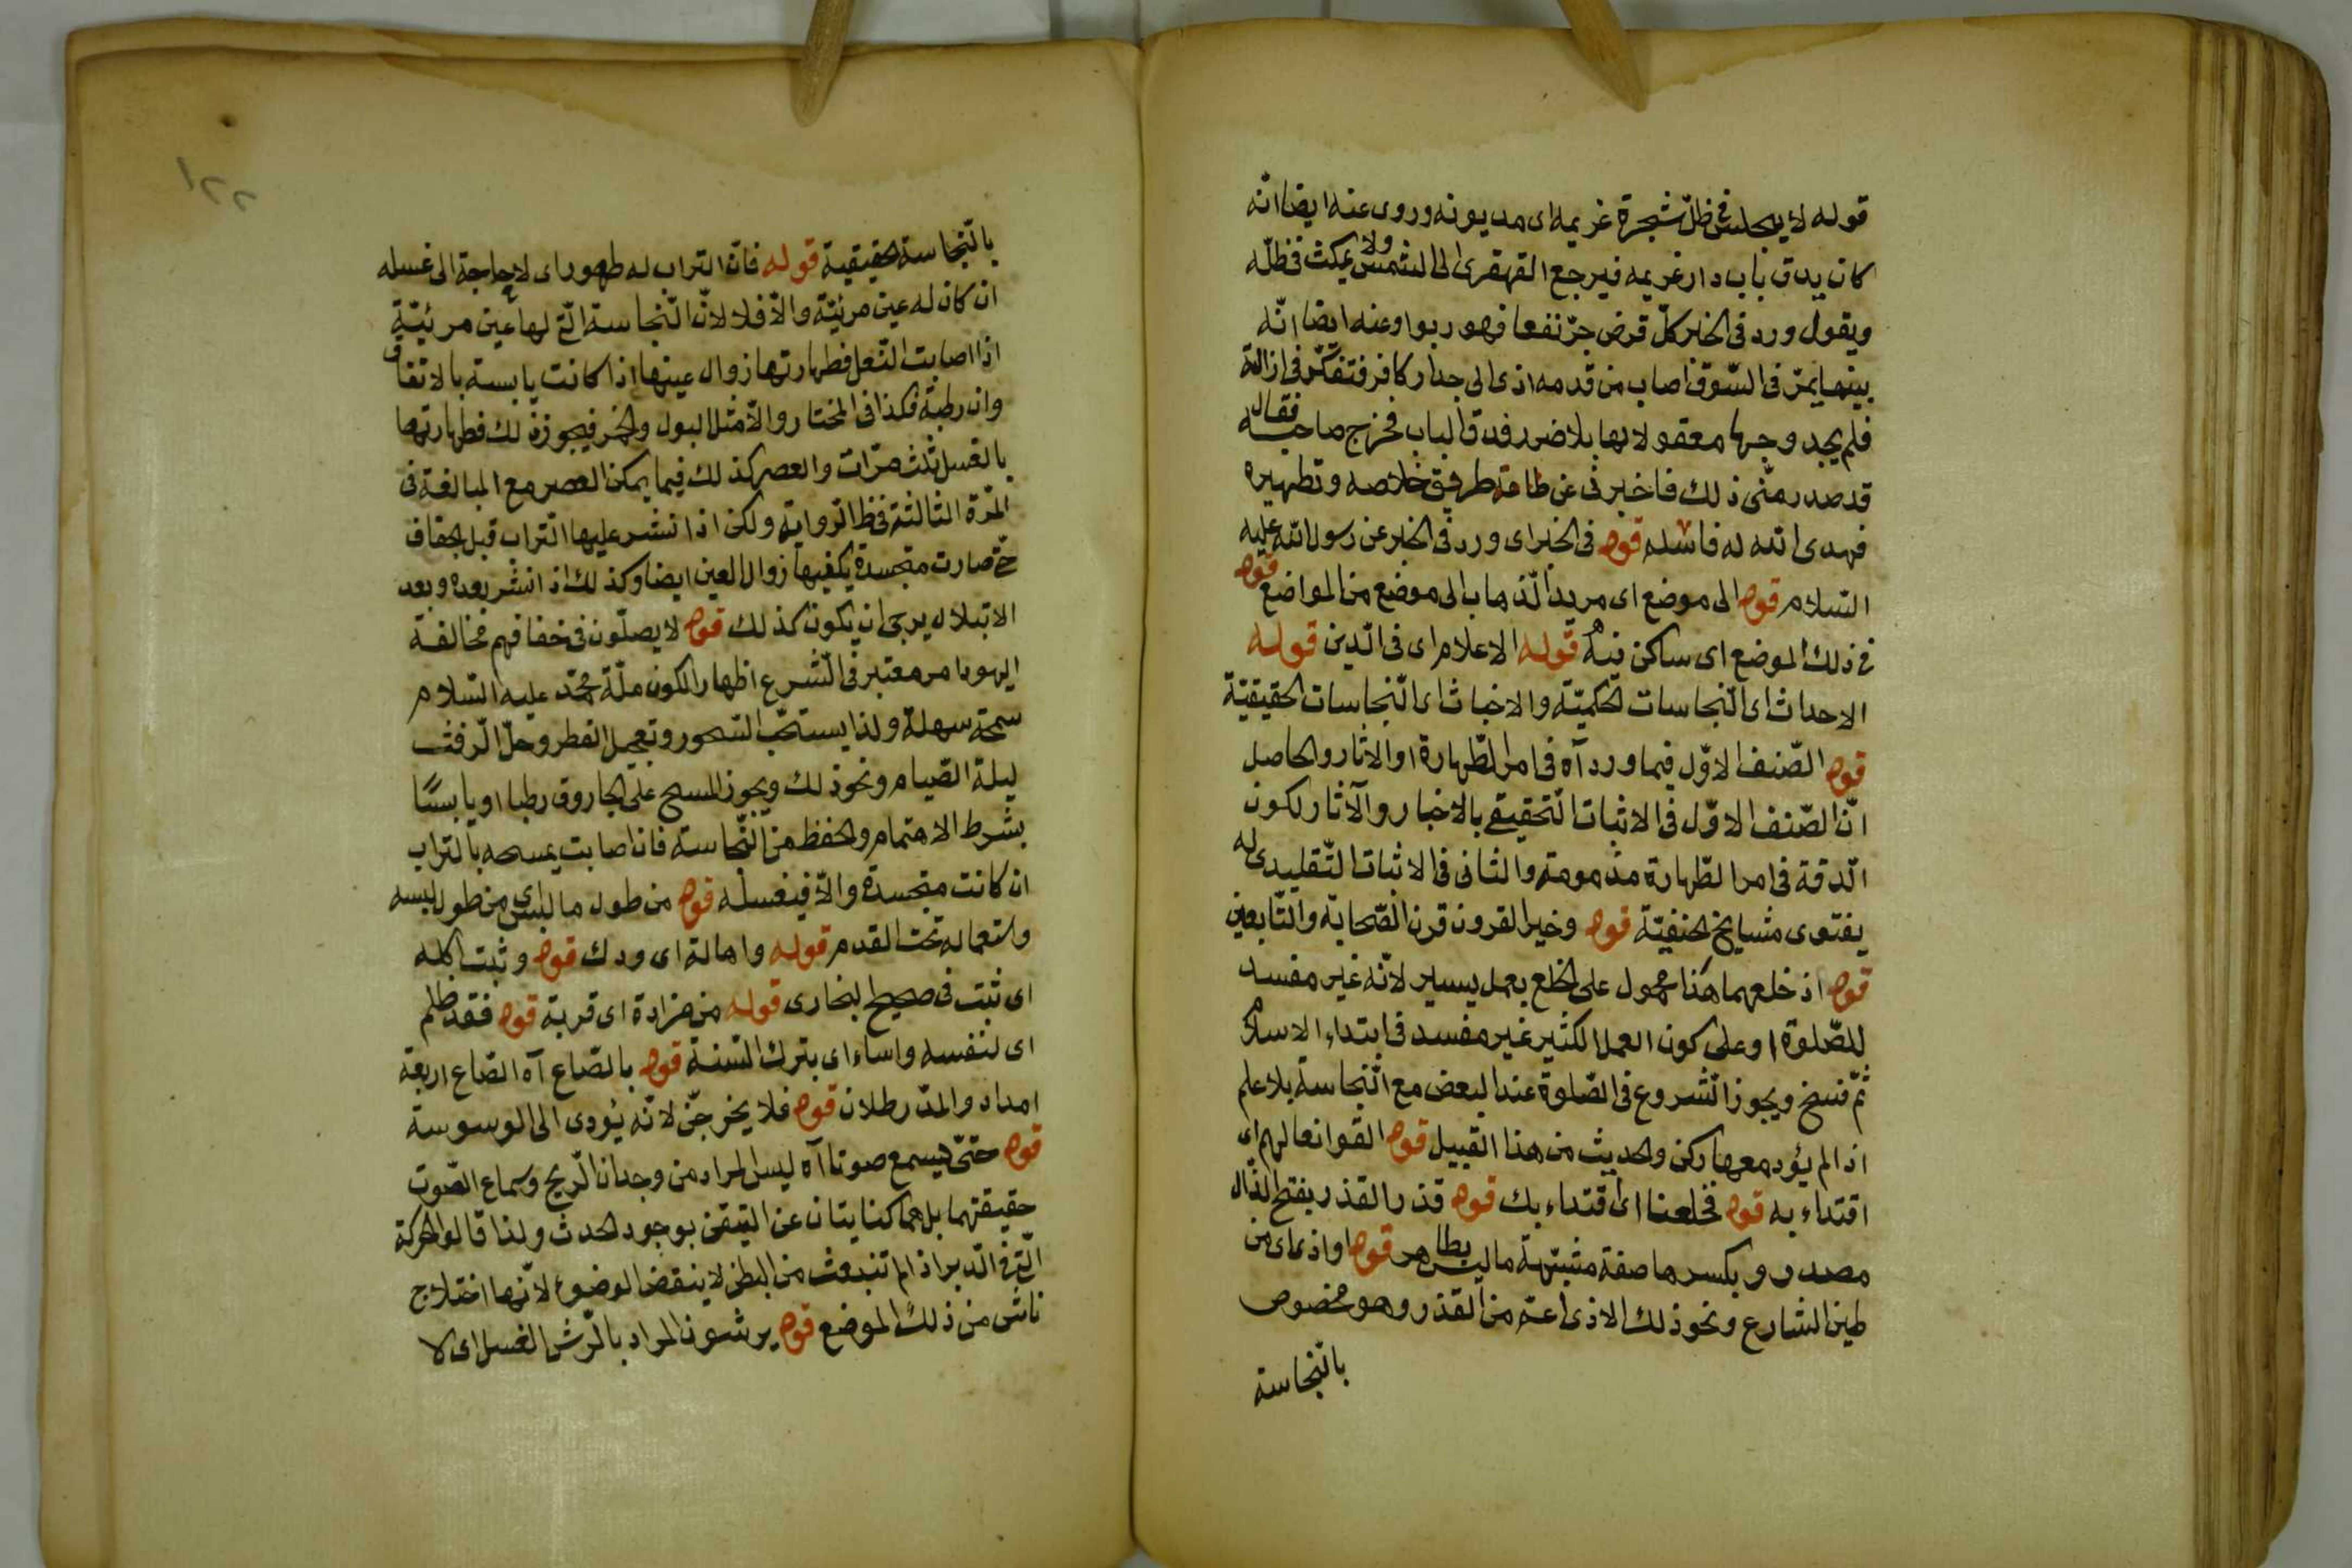 قوله لا يجلس فى ظلّ شجرة غريمه اى مديونه وروى عنه ايضا انّه
كان يدق باب دار غريمه فيرجع القهقرى الى الشمس ولا يمكث فى ظلّه
ويقول ورد فى الخبر كلّ قرض جرّ نفعا فهو ربوا وعنه ايضا انّه
بينما يمرّ فى السّوق اصاب من قدمه اذى الى جدار كافر فتفكّر فى ازالة
فلم يجد وجها معقولا لها بلا ضرر فدق الباب فخرج صاحبه فقال
قد صدر منّى ذلك فاخبرنى عن طريق خلاصه وتطهيره
فهدى الله له فاسلم قوله فى الخبر اى ورد فى الخبر عن رسول الله عليه
السّلام قوله الى موضع اى مريد الذّهاب الى موضع من المواضع قوله
فى ذلك الموضع اى ساكن فيه قوله الاعلام اى فى الدّين قوله
الاحداث اى النّجاسات الحكميّة والاخباث اى النّجاسات الحقيقيّة
قوله الصّنف الاوّل فيما ورد آه فى امر الطّهارة او الاثار والحاصل
انّ الصّنف الاوّل فى الاثبات التّحقيقى بالاخبار والآثار لكون
الدّقة فى امر الطّهارة مذمومة والثانى فى الاثبات التّقليدى له
بفتوى مشايخ الحنفيّة قوله وخير القرون قرن الصّحابة والتّابعين
قوله اذ خلعهما هذا محمول على الخلع بعمل يسير لانّه غير مفسد
للصّلوة او على كون العمل الكثير غير مفسد فى ابتداء الاسلام
ثمّ فسخ ويجوز الشّروع فى الصّلوة عند البعض مع النّجاسة بلا علم
اذا لم يؤد معها ركن والحديث من هذا القبيل قوله القوا نعالهم اى
اقتداء به قوله فخلعنا اى اقتداء بك قوله قذرا القذر بفتح الذّال
مصدر وبكسرها صفة مشبّهة ما ليس بطاهر قوله او اذى اى من
طين الشارع ونحو ذلك الاذى اعمّ من القذر وهو مخصوص
بالنّجاسة
١٢٢
بالنّجاسة الحقيقية قوله فانّ التراب له طهور اى لا حاجة الى غسله
ان كان له عين مرئيّة والّا فلا لانّ النّجاسة الّتى لها عين مرئيّة
اذا اصابت النّعل فطهارتها زوال عينها اذا كانت يابسة بالاتفاق
وان رطبة فكذا فى المختار والّا مثل البول والخمر فيجوز ذلك فطهارتها
بالغسل ثلث مرّات والعصر كذلك فيما يمكن العصر مع المبالغة فى
المرّة الثالثة فى ظ الرّواية ولكن اذا نشر عليها التّراب قبل الجفاف
حتّى صارت متجسدة يكفيها زوال العين ايضا وكذلك اذ انشر بعده وبعد
الابتلال يرجى ان يكون كذلك قوله لا يصلّون فى خفافهم مخالفة
اليهود امر معتبر فى الشّرع اظهارا لكون ملّة محمّد عليه السّلام
سمحة سهلة ولذا يستحبّ السّحور وتعجيل الفطر وحلّ الرّفث
ليلة الصّيام ونحو ذلك ويجوز المسح على الجاروق رطبا او يابسًا
بشرط الاهتمام والحفظ من النّجاسة فان اصابت يمسحه بالتراب
ان كانت متجسدة والّا فيغسله قوله من طول ما لبس اى من طول لبسه
واستعماله تحت القدم قوله واهالة اى ودك قوله وثبت اكله
اى ثبت فى صحيح البخارى قوله من مزادة اى قربة قوله فقد ظلم
اى لنفسه واساء اى بترك السّنة قوله بالصّاع آه الصّاع اربعة
امداد والمدّ رطلان قوله فلا يخرجنّ لانّه يؤدى الى الوسوسة
قوله حتّى يسمع صوتا آه ليس المراد من وجدان الرّيح وسماع الصّوت
حقيقتهما بل هما كنايتان عن التيقّن بوجود الحدث ولذا قالوا الحركة
الّتى فى الدّبر اذ لم تنبعث من البطن لا ينقض الوضوء لانّها اختلاج
ناش من ذلك الموضع قوله يرشون المراد بالرّش الغسل اى لا